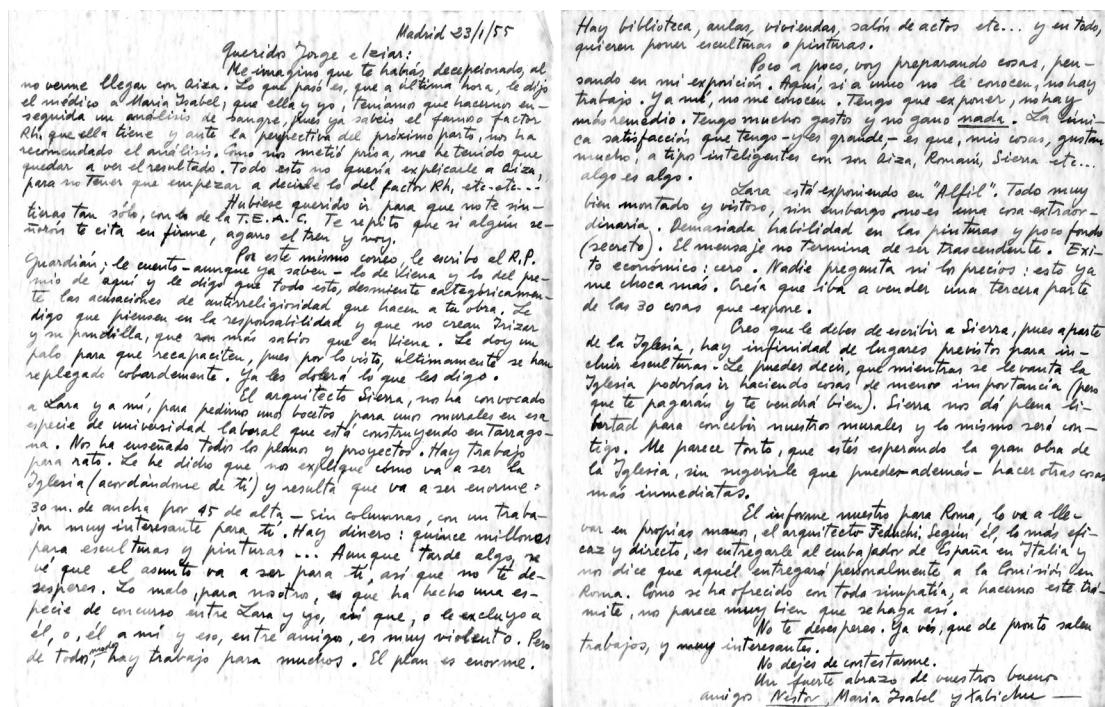 Madrid 23/1/55
Queridos Jorge e Iziar:
Me imagino que te habrás decepcionado, al
no verme llegar con Aiza. Lo que pasó es, que a última hora, le dijo
el médico a María Isabel, que ella y yo, teníamos que hacernos en-
seguida un análisis de sangre, pues ya sabeis el famoso factor
Rh, que ella tiene y ante la perspectiva del próximo parto, nos ha
recomendado el análisis. Como nos metió prisa, me he tenido que
quedar a ver el resultado. Todo esto no quería explicarle a Aiza,
para no tener que empezar a decirle lo del factor Rh, etc-etc---
Hubiese querido ir para que no te sin-
tieras tan sólo, con lo de la T.E.A.C. Te repito que si algún se-
ñorón te cita en firme, agarro el tren y voy.
Por este mismo correo, le escribo al R.P.
Guardián; le cuento - aunque ya saben - lo de Viena y lo del pre-
mio de aquí y le digo que todo esto, desmiente categóricamen-
te las acusaciones de antirreligiosidad que hacen a tu obra. Le
digo que piensen en la responsabilidad y que no crean Irizar
y su pandilla, que son más sabios que en Viena. Le doy un
palo para que recapaciten, pues por lo visto, últimamente se han
replegado cobardemente. Ya les dolerá lo que les digo.
El arquitecto Sierra, nos ha convocado
a Lara y a mí, para pedirnos unos bocetos para unos murales en esa
especie de universidad laboral que está construyendo en Tarrago-
na. Nos ha enseñado todos los planos y proyectos. Hay trabajo
para rato. Le he dicho que nos explique cómo va a ser la
Iglesia (acordándome de ti) y resulta que va a ser enorme:
30 m. de ancha por 45 de alta - sin columnas, con un traba-
jon muy interesante para ti. Hay dinero: quince millones
para esculturas y pinturas ... Aunque tarde algo, se
vé que el asunto va a ser para ti, así que no te de-
sesperes. Lo malo, para nosotros, es que ha hecho una es-
pecie de concurso entre Lara y yo, así que, o le excluyo a
él, o, él a mí y eso, entre amigos, es muy violento. Pero
de todos modos, hay trabajo para muchos. El plan es enorme.
Hay biblioteca, aulas, viviendas, salón de actos etc... y en todo,
quieren poner esculturas o pinturas.
Poco a poco, voy preparando cosas, pen-
sando en mi exposición. Aquí, si a uno no le conocen, no hay
trabajo. Y a mí, no me conocen. Tengo que exponer, no hay
más remedio. Tengo muchos gastos y no gano nada. La úni-
ca satisfacción que tengo - y es grande - es que, mis cosas, gustan
mucho, a tipos inteligentes como son Aiza, Romaní, Sierra etc...
algo es algo.
Lara está exponiendo en "Alfil". Todo muy
bien montado y vistoso, sin embargo no es una cosa extraor-
dinaria. Demasiada habilidad en las pinturas y poco fondo
(secreto). El mensaje no termina de ser trascendente. Exi-
to económico: cero. Nadie pregunta ni los precios: esto ya
me choca más. Creía que iba a vender una tercera parte
de las 30 cosas que expone.
Creo que le debes de escribir a Sierra, pues a parte
de la Iglesia, hay infinidad de lugares previstos para in-
cluir esculturas. Le puedes decir, que mientras se levanta la
Iglesia podrías ir haciendo cosas de menor importancia (pero
que te pagarán y te vendrá bien). Sierra nos dá plena li-
bertad para concebir nuestros murales y lo mismo será con-
tigo. Me parece tonto, que estés esperando la gran obra de
la Iglesia, sin sugerirle que puedes - además - hacer otras cosas
más inmediatas.
El informe nuestro para Roma, lo va a lle-
var en propias manos, el arquitecto Feduchi. Según él, lo más efi-
caz y directo, es entregarle al embajador de España en Italia y
nos dice que aquél entregará personalmente a la Comisión en
Roma. Como se ha ofrecido con toda simpatía, a hacernos este trá-
mite, nos parece muy bien que se haga así.
No te desesperes. Ya vés, que de pronto salen
trabajos, y muy interesantes.
No dejes de contestarme.
Un fuerte abrazo de vuestros buenos
amigos Nestor, María Isabel y Xabichu